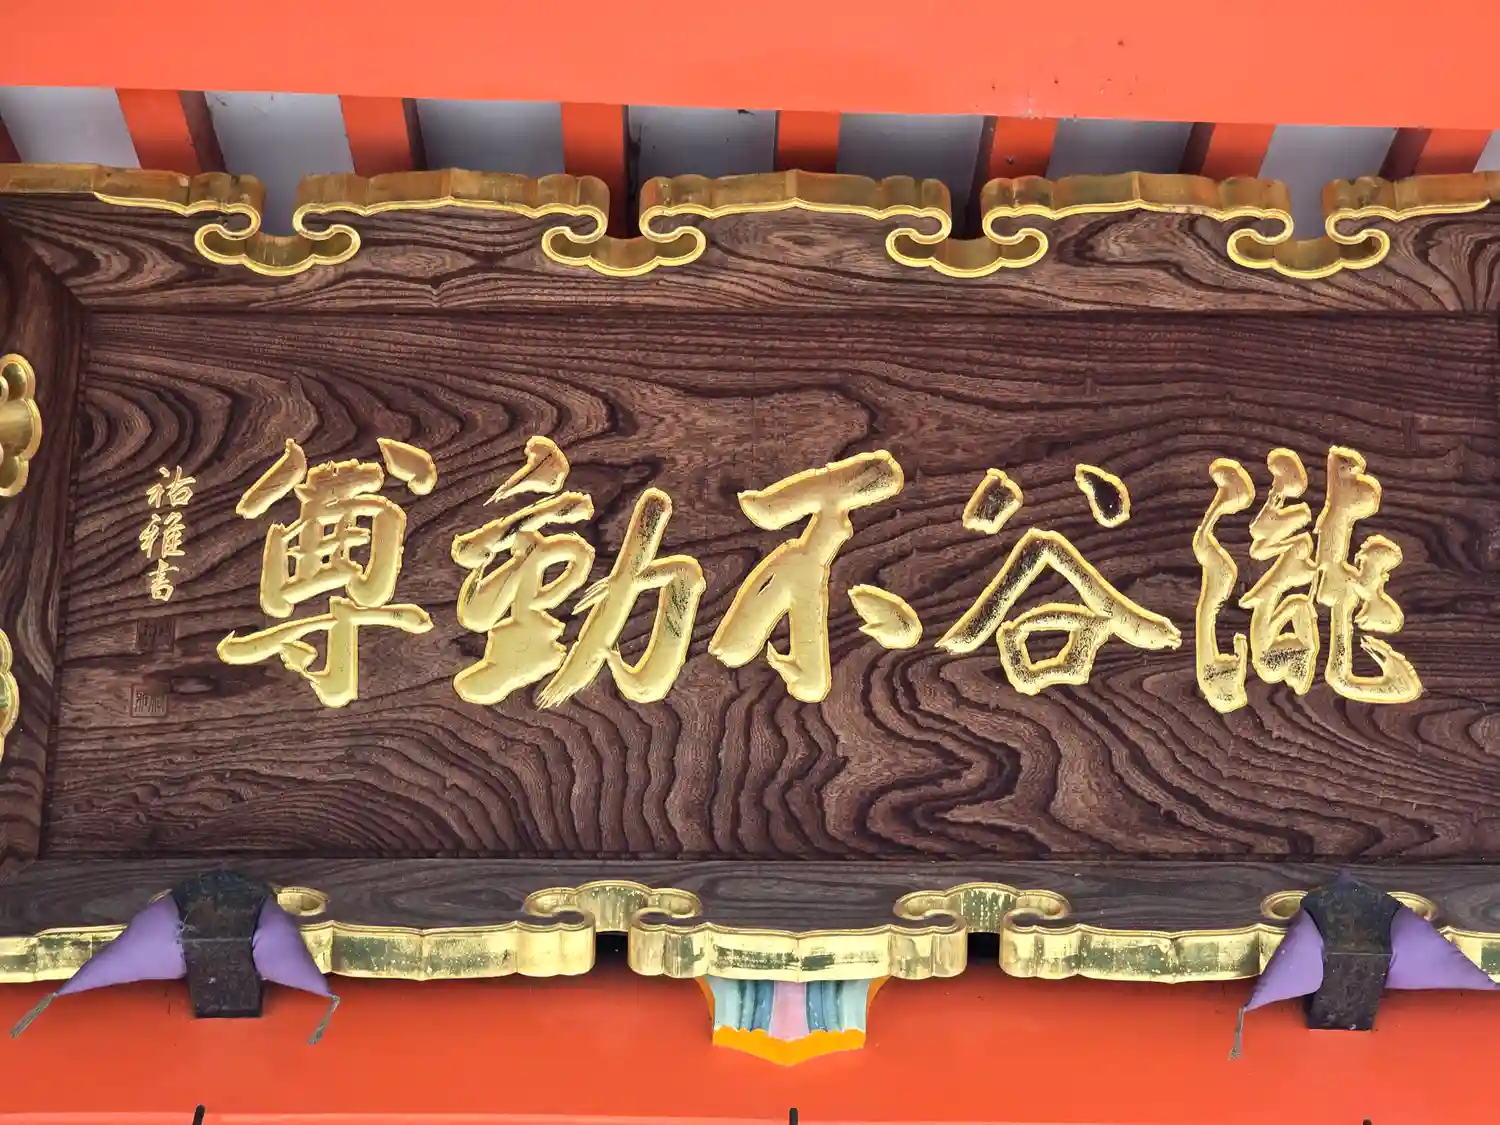 瀧谷不動尊
祐雅書